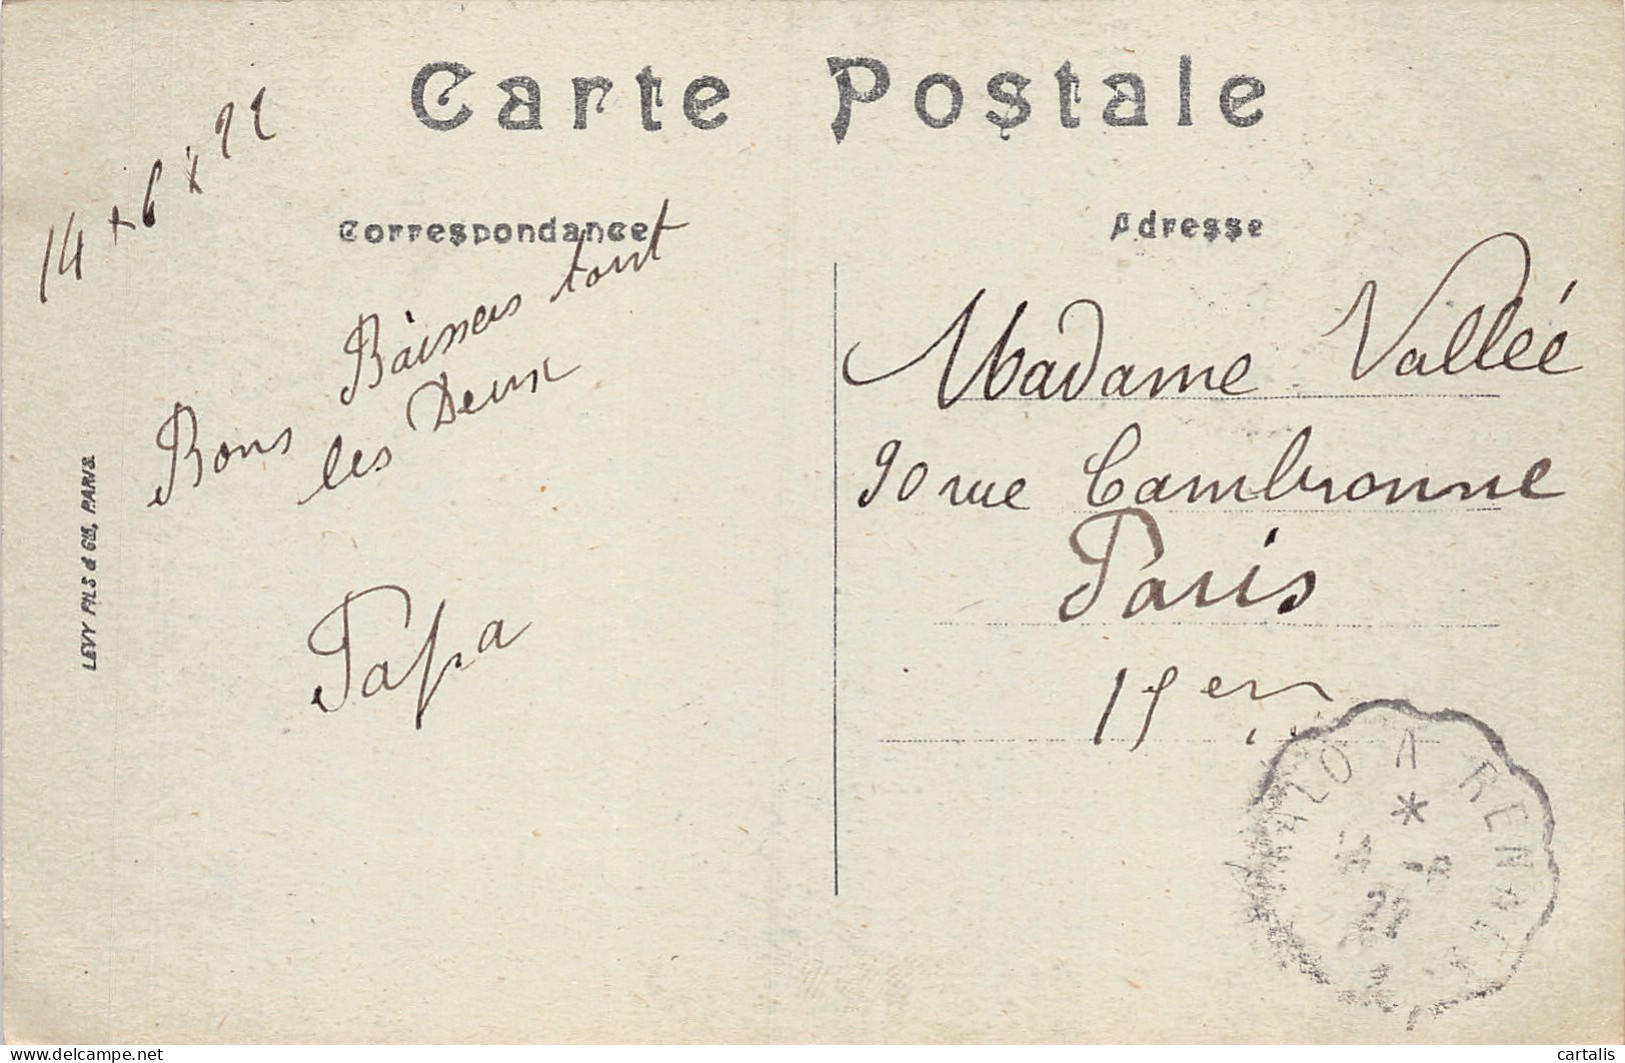 Carte Postale
14 x 6 x 21
Correspondance
Bons Baisers tout
les Deux
Papa
LEVY FILS & Cie, PARIS
Adresse
Madame Vallée
90 rue Cambronne
Paris
15em
MALO A RENNES
14 -6
21
delcampe.net
cartalis